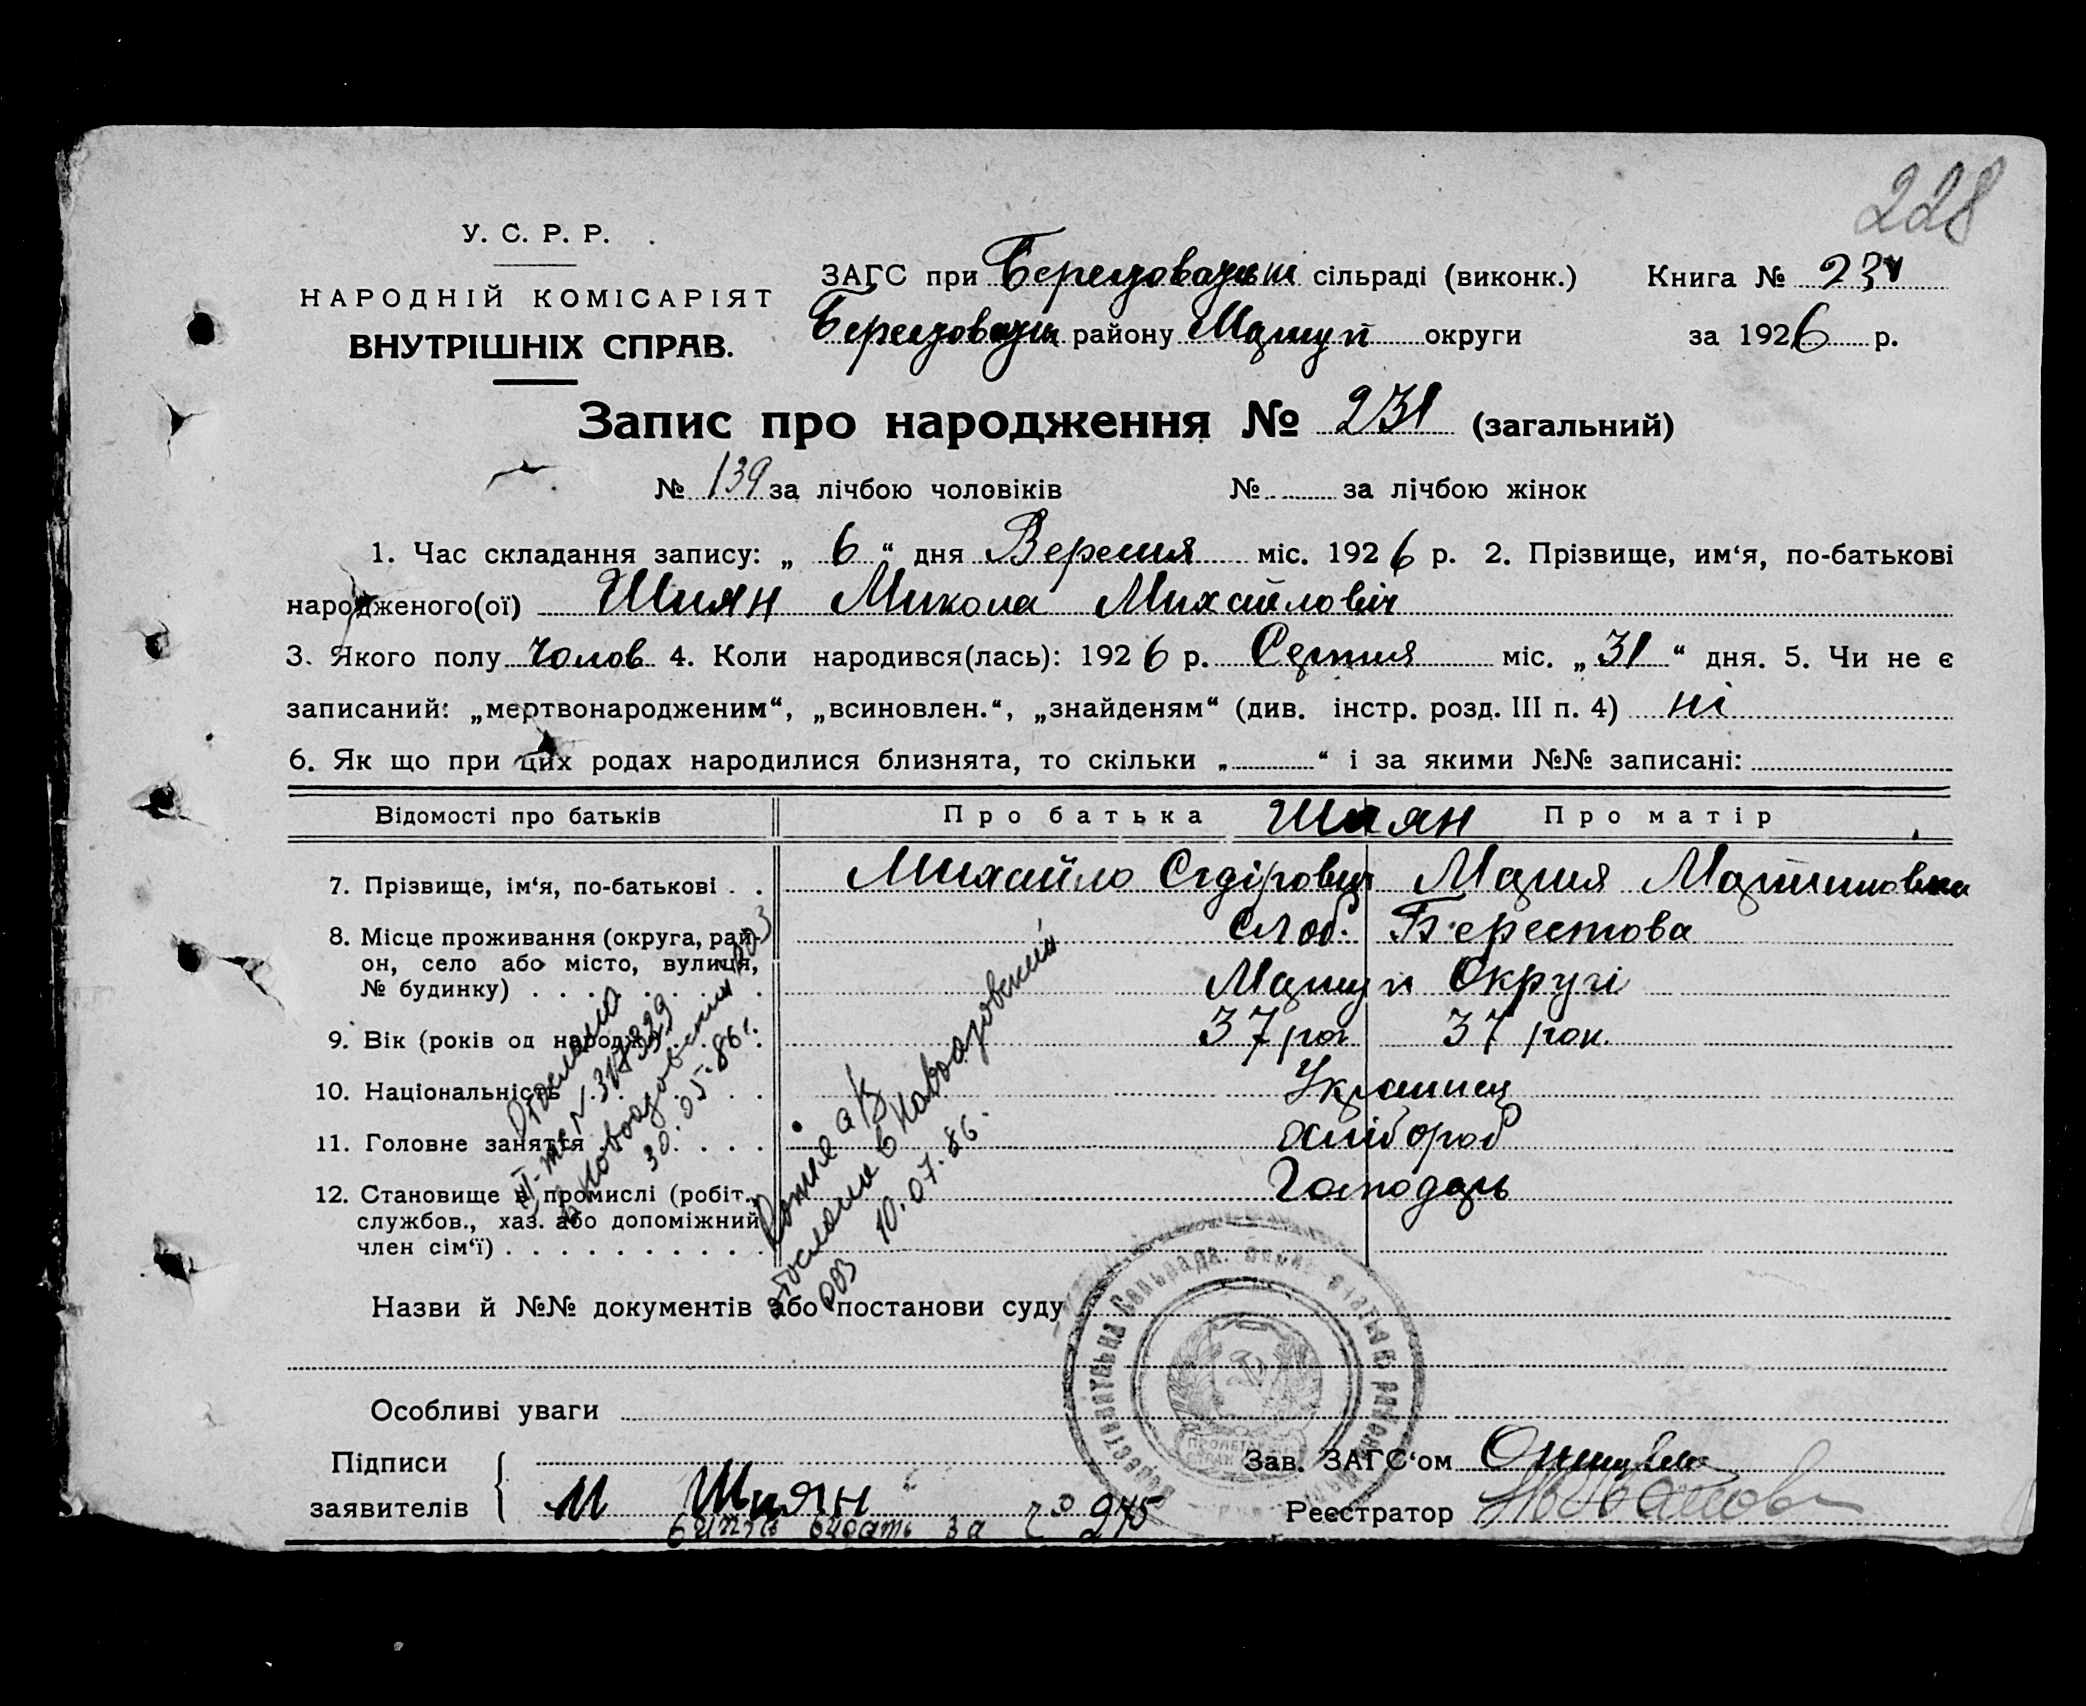 228
У. С. Р. Р.
НАРОДНІЙ КОМІСАРІЯТ
ВНУТРІШНІХ СПРАВ.
ЗАГС при сільраді (виконк.)
району Маріуп округи
Книга № 231
за 1926 р.
Запис про народження № 231 (загальний)
№ 139 за лічбою чоловіків № за лічбою жінок
1. Час складання запису: „ 6 “ дня Вересня міс. 1926 р. 2. Прізвище, им‘я, по-батькові
народженого(ої) Шиян Микола Михайловіч
3. Якого полу Чолов 4. Коли народився(лась): 1926 р. Серпня міс. „ 31 “ дня. 5. Чи не є
записаний: „мертвонародженим“, „всиновлен.“, „знайденям“ (див. інстр. розд. III п. 4) ні
6. Як що при цих родах народилися близнята, то скільки „ “ і за якими №№ записані:
Відомості про батьків Про батька Шиян Про матір
7. Прізвище, ім‘я, по-батькові . . Михайло Сідіровіч Мария Мартиновна
8. Місце проживання (округа, рай-
он, село або місто, вулиця,
№ будинку) . . . . . . .
Слоб. Берестова
Маріуп Округі
9. Вік (років од народж.) . . . . 37 рок 37 рок.
10. Національність . . . . . . Украинец
11. Головне заняття . . . . . Хлібороб
12. Становище в промислі (робіт.,
службов., хаз. або допоміжний
член сім‘ї) . . . . . . . . . . .
Господарь
Отослано
в Новоазовский РОЗ
30.05.86г.
Копия а/з
отослана в Новоазовский
РОЗ 10.07.86.
Назви й №№ документів або постанови суду
Особливі уваги
Підписи
заявителів
М Шиян
Зав. ЗАГС‘ом
Реєстратор